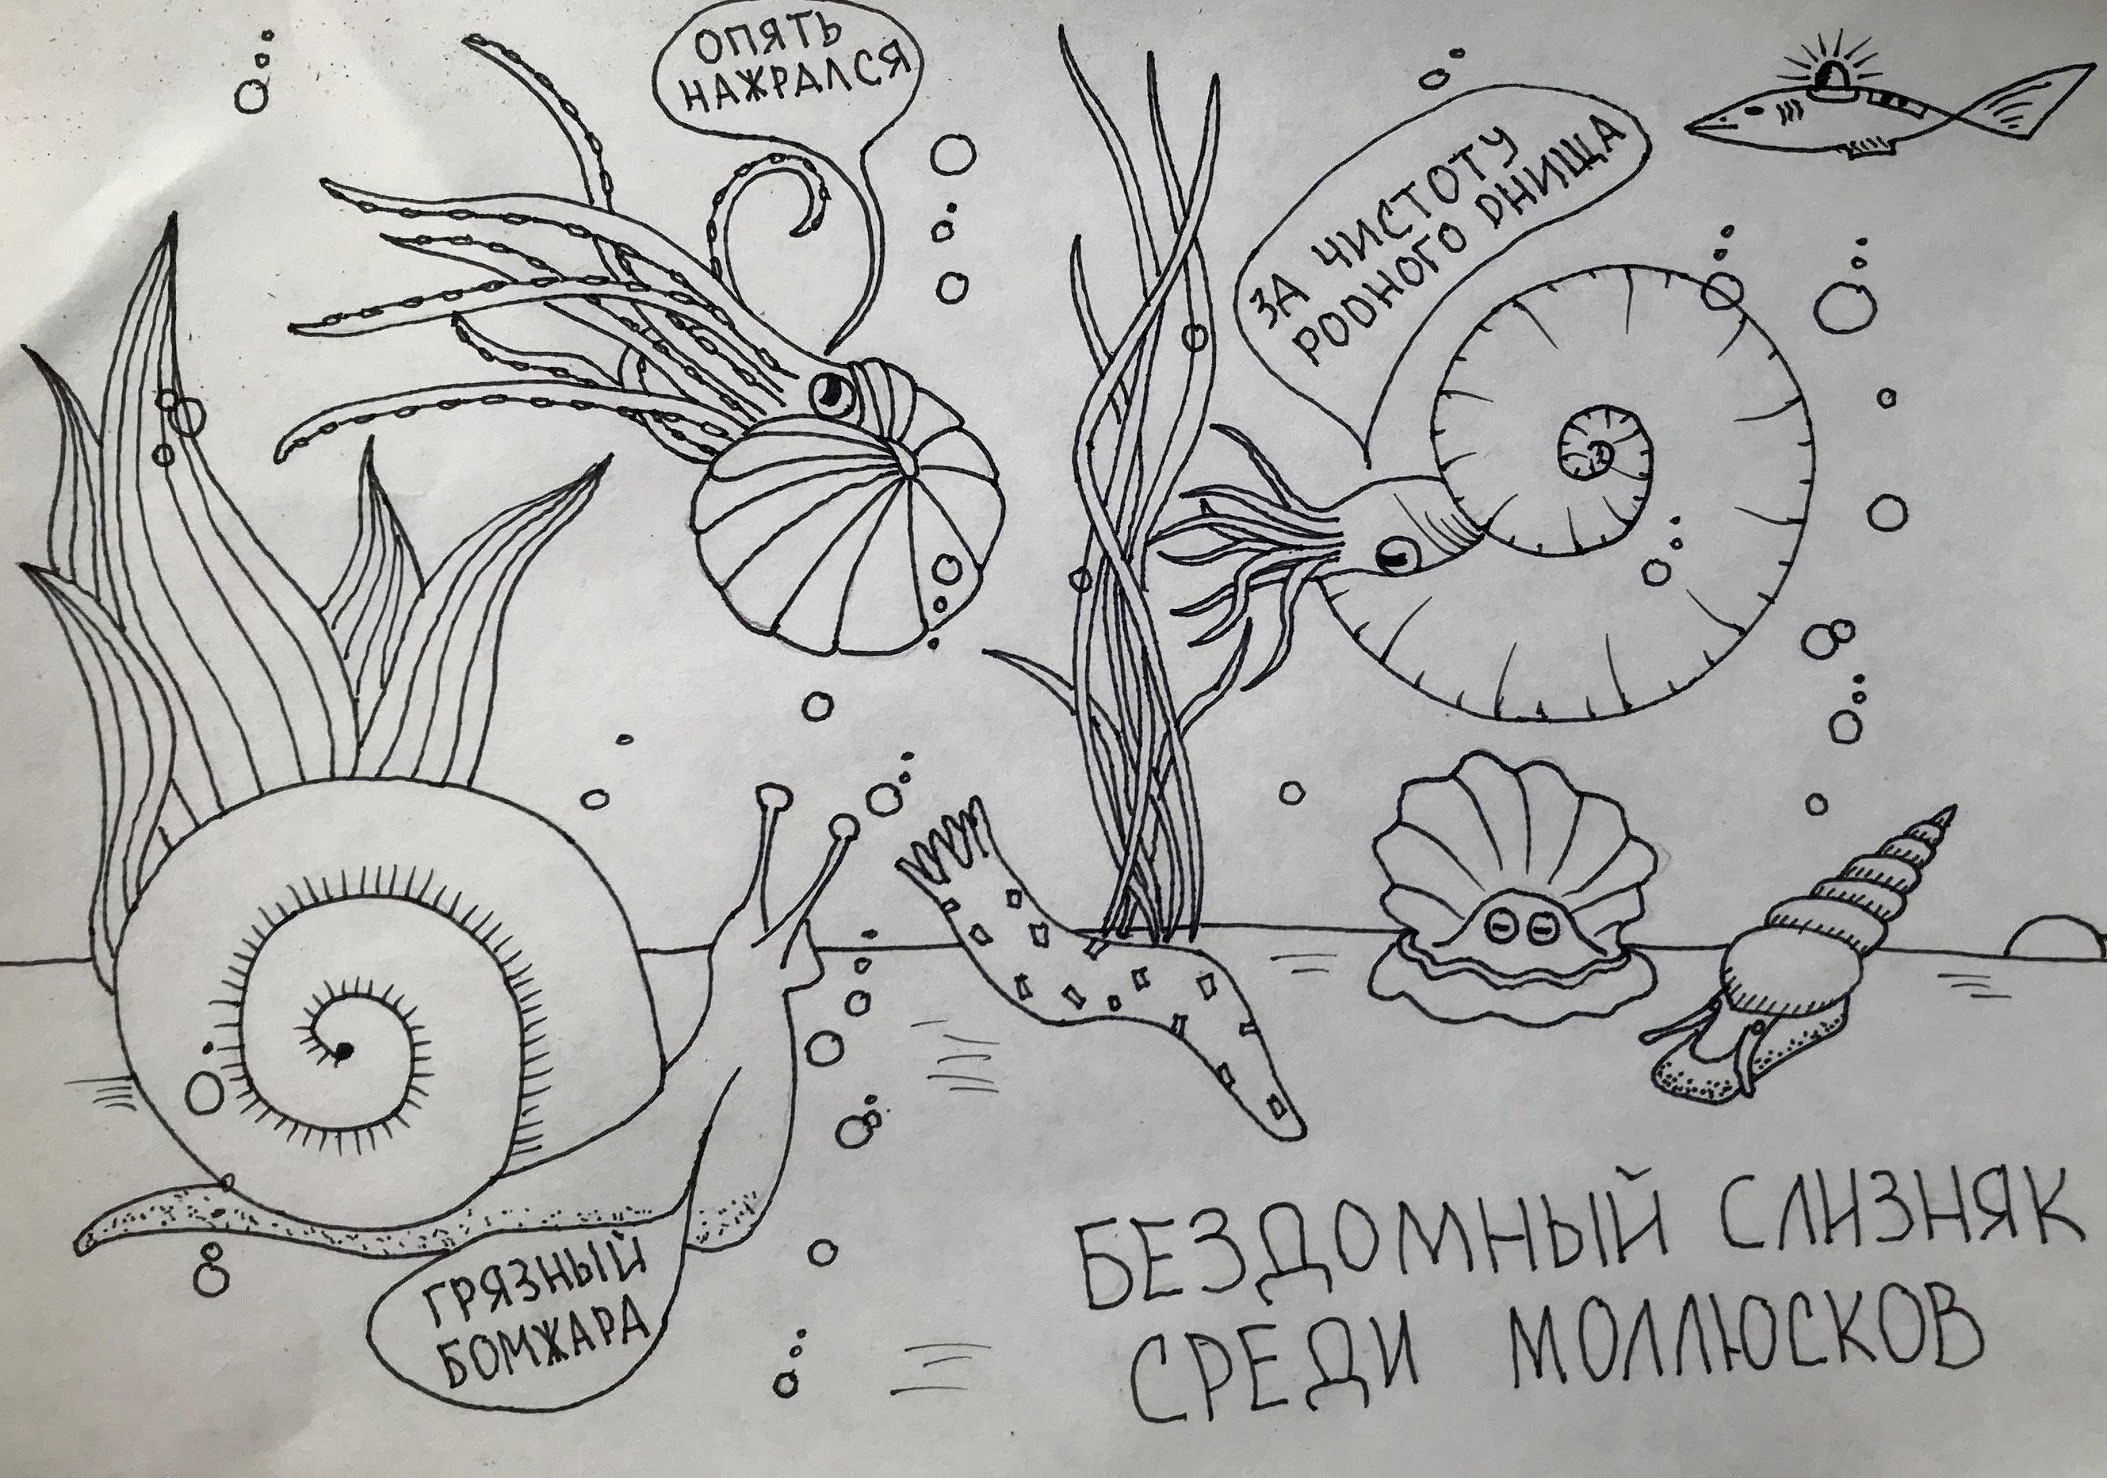 ОПЯТЬ
НАЖРАЛСЯ
ЗА ЧИСТОТУ
РОДНОГО ДНИЩА
ГРЯЗНЫЙ
БОМЖАРА
БЕЗДОМНЫЙ СЛИЗНЯК
СРЕДИ МОЛЛЮСКОВ